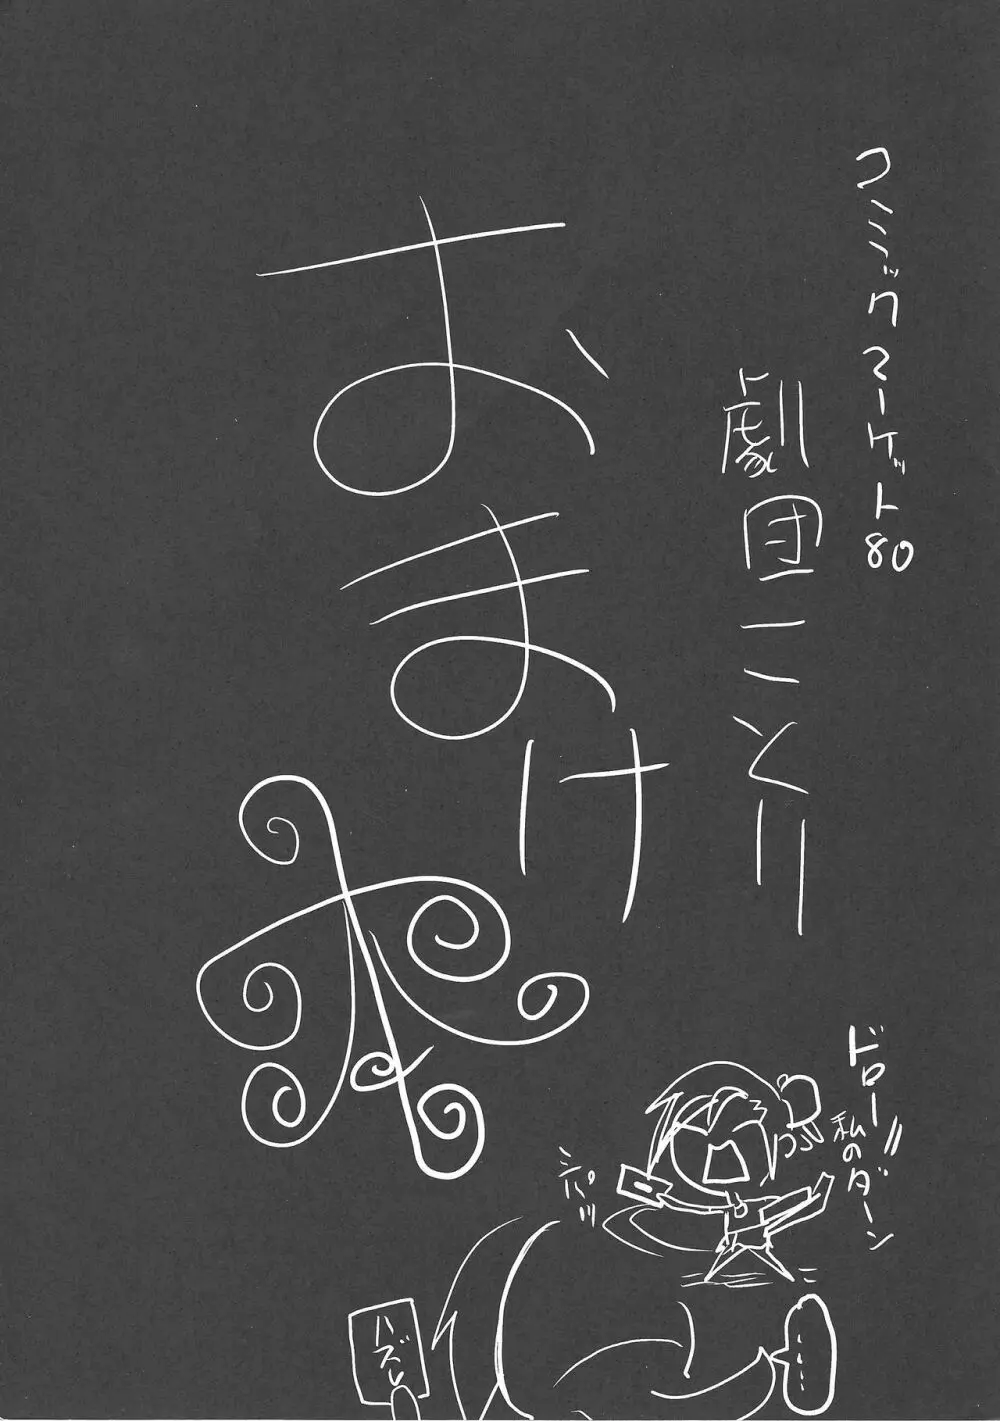 コミックマーケット80
劇団ことり
おまけ本
ドロー!! 私のターン
シパッ
ハズレ
……